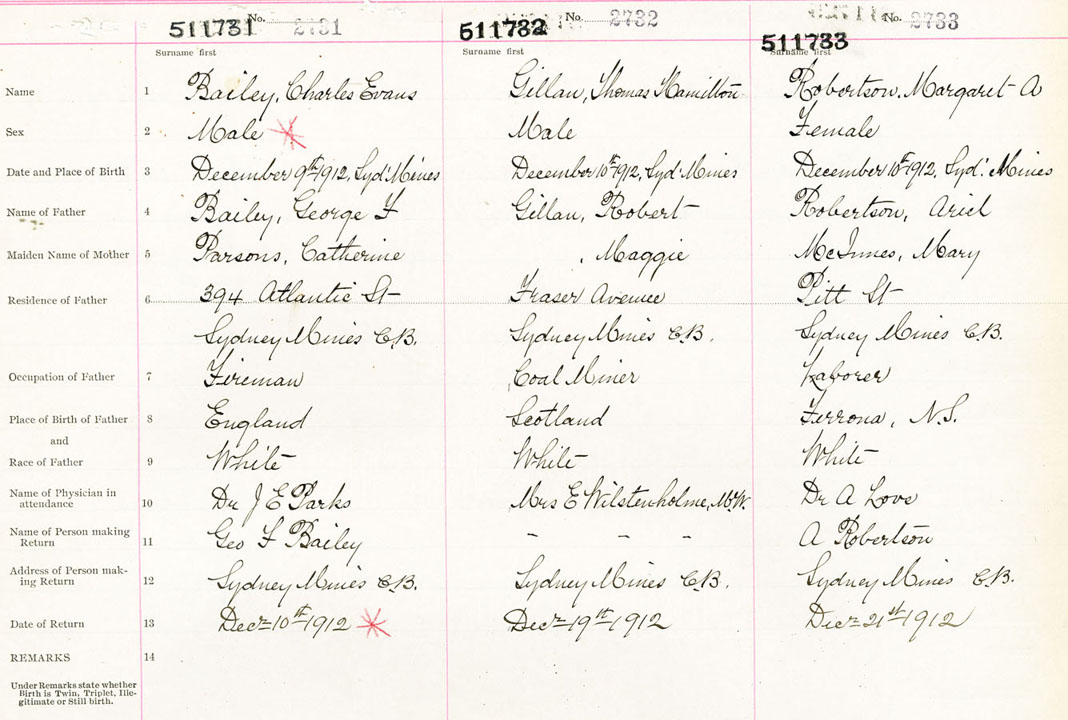 No. 511731 2731 No. 511732 2732 No. 511733 2733
Surname first Surname first Surname first
Name 1 Bailey, Charles Evans Gillan, Thomas Hamilton Robertson, Margaret A
Sex 2 Male Male Female
Date and Place of Birth 3 December 9th 1912, Syd. Mines December 10th 1912, Syd. Mines December 10th 1912, Syd. Mines
Name of Father 4 Bailey, George F Gillan, Robert Robertson, Ariel
Maiden Name of Mother 5 Parsons, Catherine , Maggie McInnes, Mary
Residence of Father 6 394 Atlantic St Fraser Avenue Pitt St
Sydney Mines C.B. Sydney Mines C.B. Sydney Mines C.B.
Occupation of Father 7 Fireman Coal Miner Laborer
Place of Birth of Father 8 England Scotland Ferrona, N.S.
and
Race of Father 9 White White White
Name of Physician in attendance 10 Dr J E Parks Mrs E Wilstenholme, MW. Dr A Love
Name of Person making Return 11 Geo F Bailey - - - A Robertson
Address of Person mak-
ing Return 12 Sydney Mines C.B. Sydney Mines C.B. Sydney Mines C.B.
Date of Return 13 Decr 10th 1912 Decr 19th 1912 Decr 21st 1912
REMARKS 14
Under Remarks state whether
Birth is Twin, Triplet, Ille-
gitimate or Still birth.